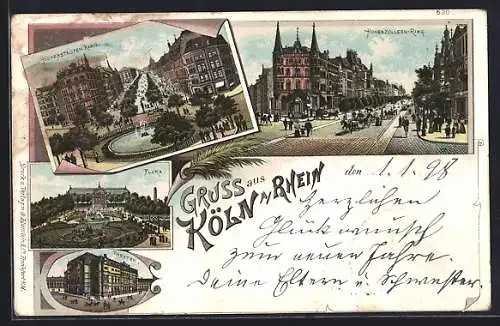 630
HOHENSTAUFEN-RING
HOHENZOLLERN-RING
FLORA
THEATER
GRUSS aus
KÖLN A/RHEIN
den 1.1.98
Herzlichen
Glückwunsch
zum neuen Jahre.
Deine Eltern u Schwester.
Druck u. Verlag v.
Frankfurt a/M.